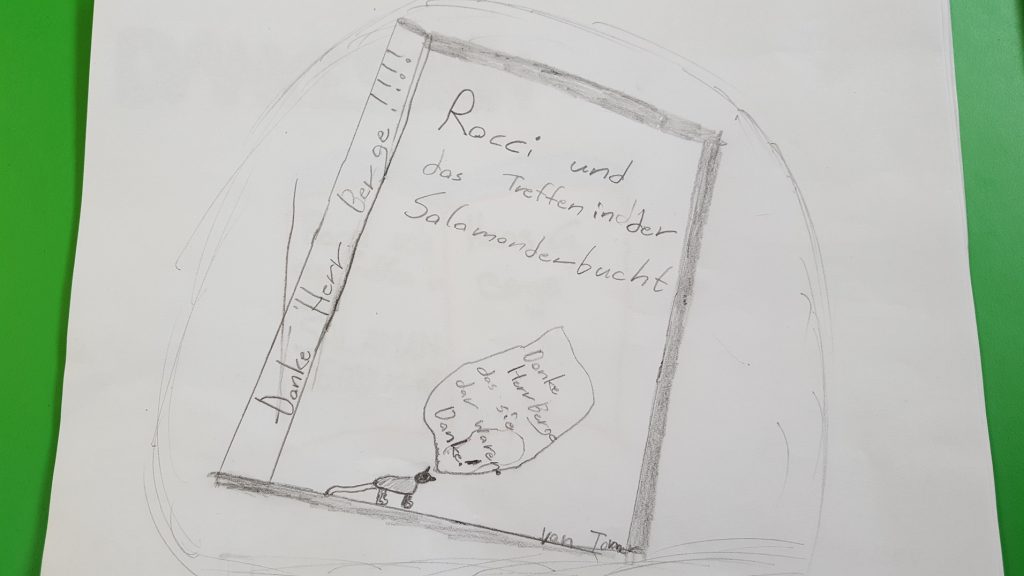 Danke Herr Berge!!!!
Rocci und
das Treffen in der
Salamanderbucht
Danke
Herr Berge
das sie
dar waren
Danke!
von